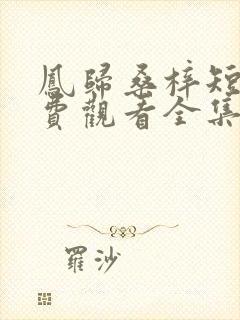 鳳歸桑梓短
費觀看全集
羅沙